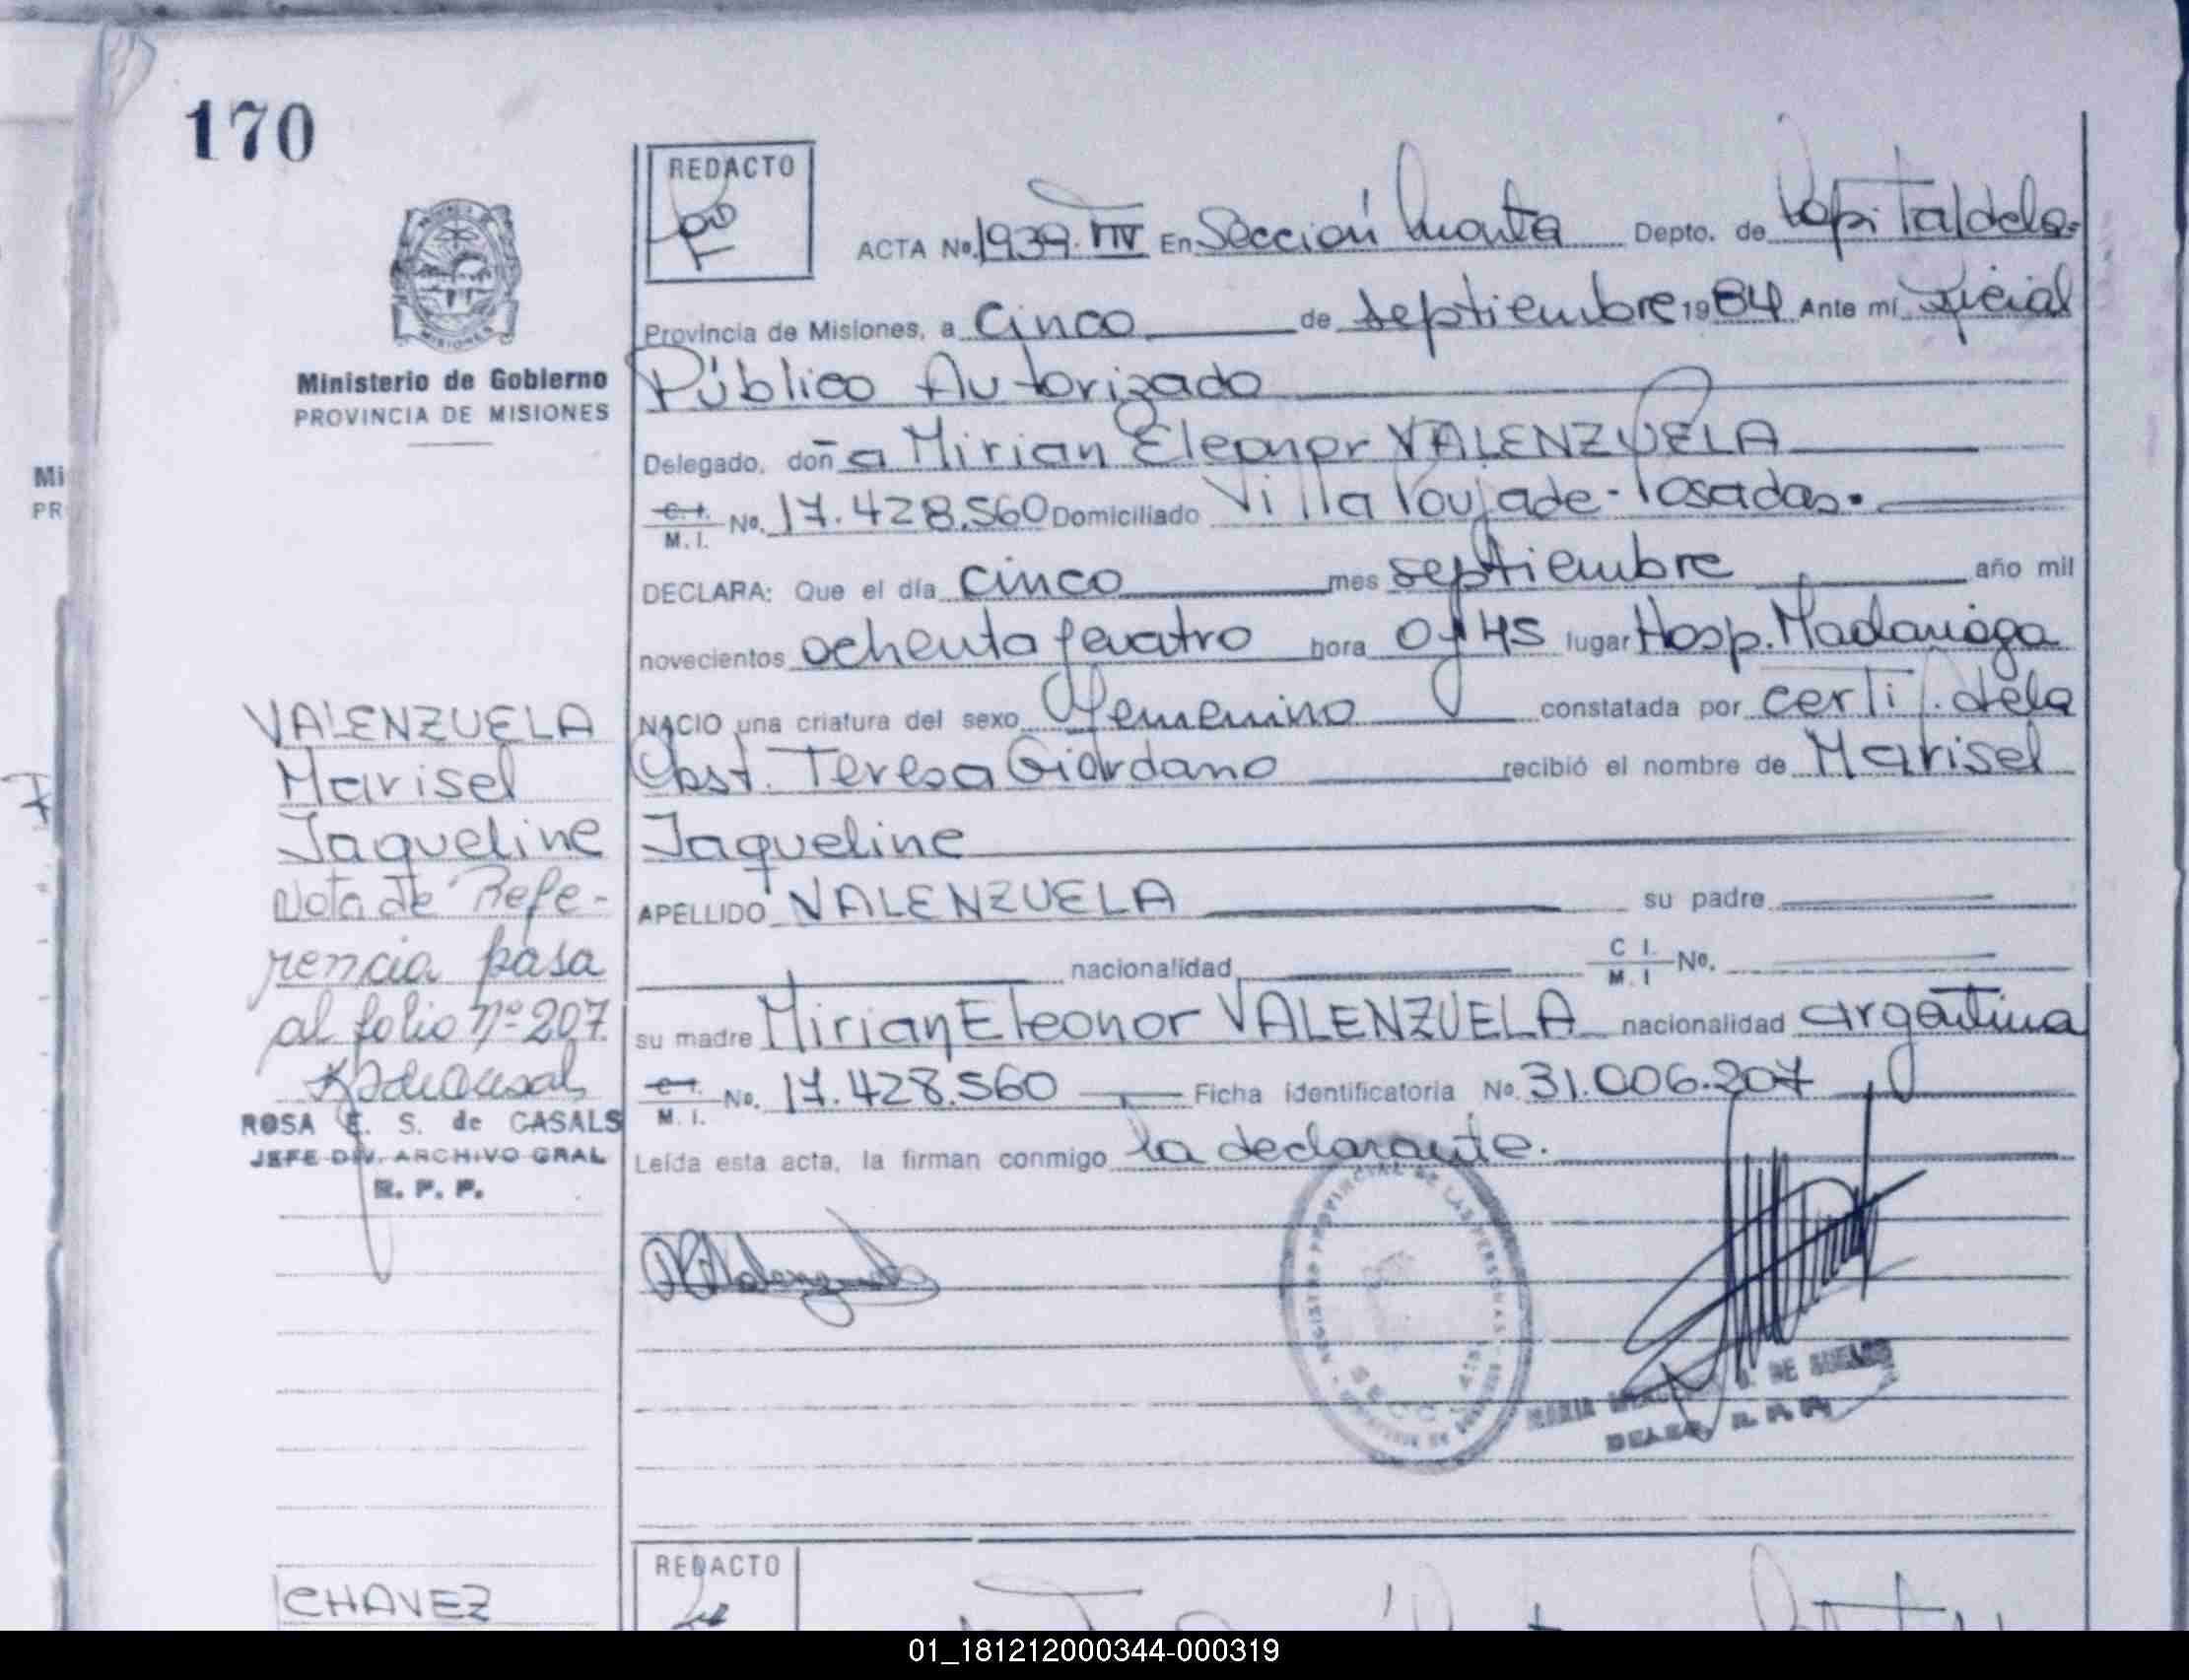 170
REDACTO
ACTA No. 1939. TIV En Sección Cuarta Depto. de Capital dela
Provincia de Misiones, a cinco de septiembre 1984 Ante mí Oficial
Ministerio de Gobierno
PROVINCIA DE MISIONES
Público Autorizado
Delegado, doña Mirian Eleonor VALENZUELA
C. I. M. I. No. 17.428.560 Domiciliado Villa Poujade - Posadas.
Mi
PR
DECLARA: Que el día cinco mes septiembre año mil
novecientos ochenta y cuatro hora 0 y 45 lugar Hosp. Madariaga
NACIO una criatura del sexo femenino constatada por certif. dela
Obst. Teresa Giordano recibió el nombre de Marisel
Jaqueline
APELLIDO VALENZUELA su padre
nacionalidad C I. M. I No.
su madre Mirian Eleonor VALENZUELA nacionalidad argentina
C. I. M. I. No. 17.428.560 Ficha identificatoria No. 31.006.207
Leída esta acta, la firman conmigo la declarante.
VALENZUELA
Marisel
Jaqueline
Nota de Refe-
rencia pasa
al folio nº 207.
ROSA E. S. de CASALS
JEFE DIV. ARCHIVO GRAL
R. P. P.
REGISTRO PROVINCIAL DE LAS PERSONAS
MARIA DE
DELEG. R. P. P.
CHAVEZ
REDACTO
01_181212000344-000319